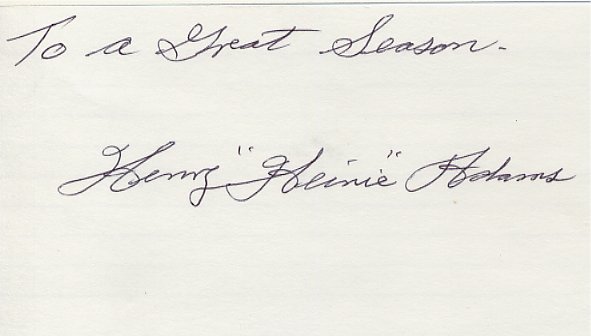 To a Great Season.
Henry "Heinie" Adams